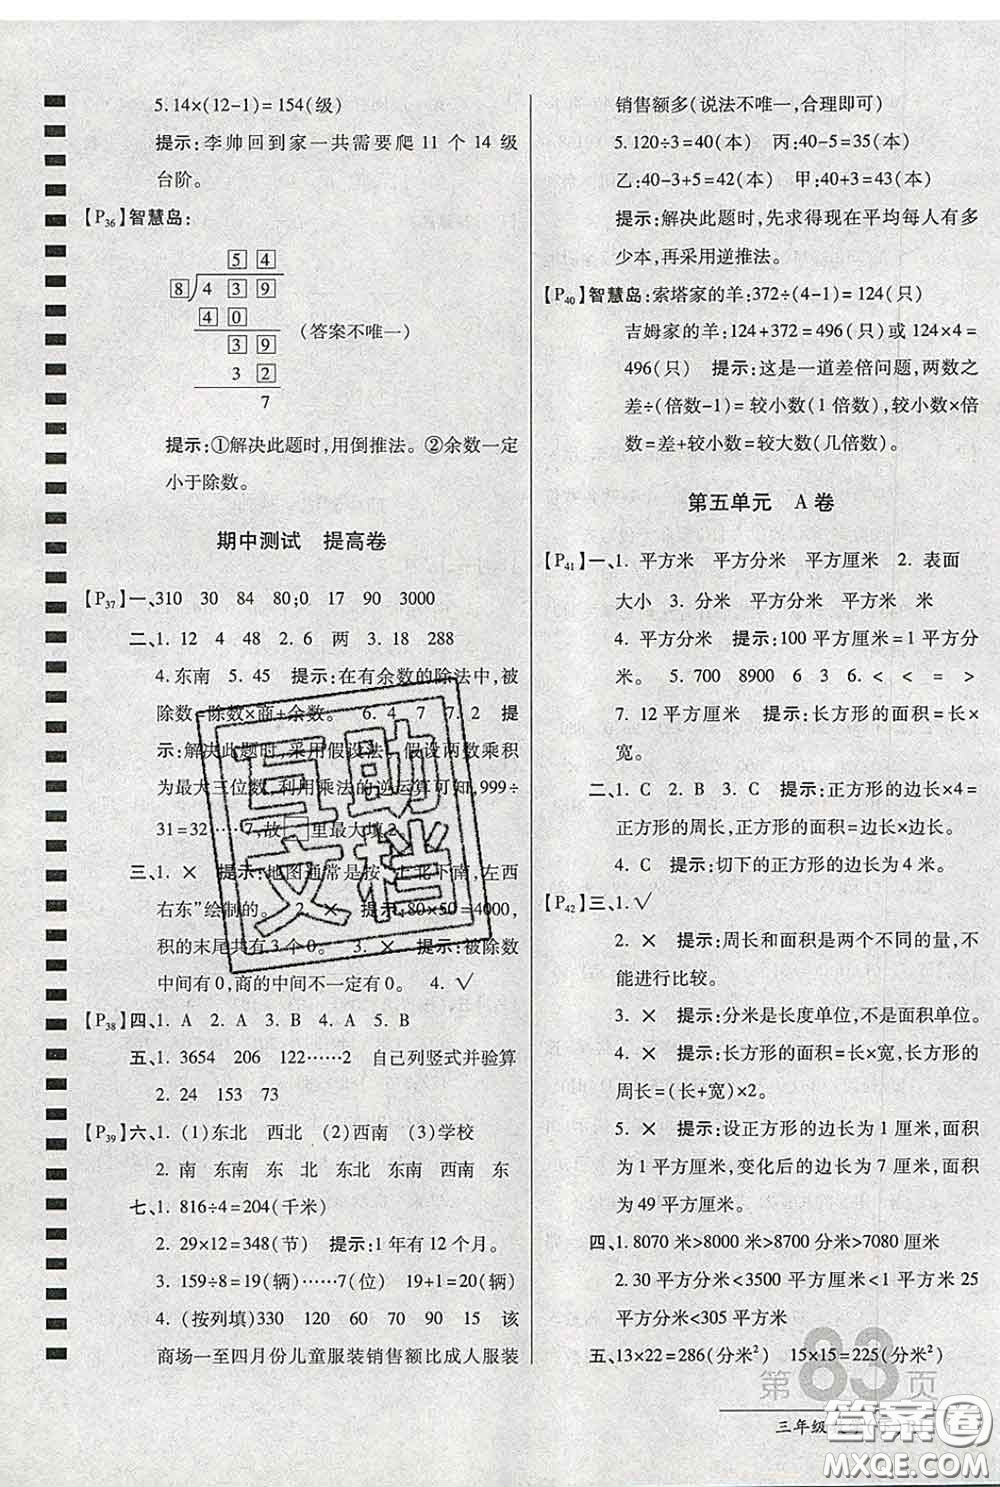 5.14×(12-1)=154(级)
提示:李帅回到家一共需要爬 11 个 14 级
台阶。
【P36】智慧岛:
5 4
8 4 3 9
4 0
3 9
(答案不唯一)
3 2
7
提示:①解决此题时,用倒推法。②余数一定
小于除数。
期中测试 提高卷
【P37】一、310 30 84 80;0 17 90 3000
二、1. 12 4 48 2. 6 两 3. 18 288
4. 东南 5. 45 提示:在有余数的除法中,被
除数=除数×商+余数。 6. 4 7 7. 2 提
示:解决此题时,采用假设法。假设两数乘积
为最大三位数,利用乘法的逆运算可知,999÷
31=32……7,故□里最大填2。
三、1. × 提示:地图通常是按“上北下南,左西
右东”绘制的。 2. × 提示:80×50=4000,
积的末尾共有 3 个 0。 3. × 提示:被除数
中间有 0,商的中间不一定有 0。 4. √
【P38】四、1. A 2. A 3. B 4. A 5. B
五、1. 3654 206 122……2 自己列竖式并验算
2. 24 153 73
【P39】六、1. (1)东北 西北 (2)西南 (3)学校
2. 南 东南 东 北 东北 东南 西南 东
七、1. 816÷4=204(千米)
2. 29×12=348(节) 提示:1 年有 12 个月。
3. 159÷8=19(辆)……7(位) 19+1=20(辆)
4. (按列填)330 120 60 70 90 110 该
商场一至四月份儿童服装销售额比成人服装
销售额多(说法不唯一,合理即可)
5. 120÷3=40(本) 丙:40-5=35(本)
乙:40-3+5=42(本) 甲:40+3=43(本)
提示:解决此题时,先求得现在平均每人有多
少本,再采用逆推法。
【P40】智慧岛:索塔家的羊:372÷(4-1)=124(只)
吉姆家的羊:124+372=496(只)或 124×4=
496(只) 提示:这是一道差倍问题,两数之
差÷(倍数-1)=较小数(1 倍数),较小数×倍
数=较小数+差=较大数(几倍数)。
第五单元 A 卷
【P41】一、1. 平方米 平方分米 平方厘米 2. 表面
大小 3. 分米 平方米 平方厘米 米
4. 平方分米 提示:100 平方厘米=1 平方分
米。 5. 700 8900 6 3 6. < < = >
7. 12 平方厘米 提示:长方形的面积=长×
宽。
二、1. C 2. B 3. C 提示:正方形的边长×4=
正方形的周长,正方形的面积=边长×边长。
4. C 提示:切下的正方形的边长为 4 米。
【P42】三、1.√
2. × 提示:周长和面积是两个不同的量,不
能进行比较。
3. × 提示:分米是长度单位,不是面积单位。
4. × 提示:长方形的面积=长×宽,长方形的
周长=(长+宽)×2。
5. × 提示:设正方形的边长为 1 厘米,面积
为 1 平方厘米,变化后的边长为 7 厘米,面积
为 49 平方厘米。
四、1. 8070 米>8000 米>8700 分米>7080 厘米
2. 30 平方分米<3500 平方厘米<1 平方米 25
平方分米<305 平方米
五、13×22=286(分米²) 15×15=225(分米²)
第83页
三年级
互助文档
答案圈
MXQE.COM